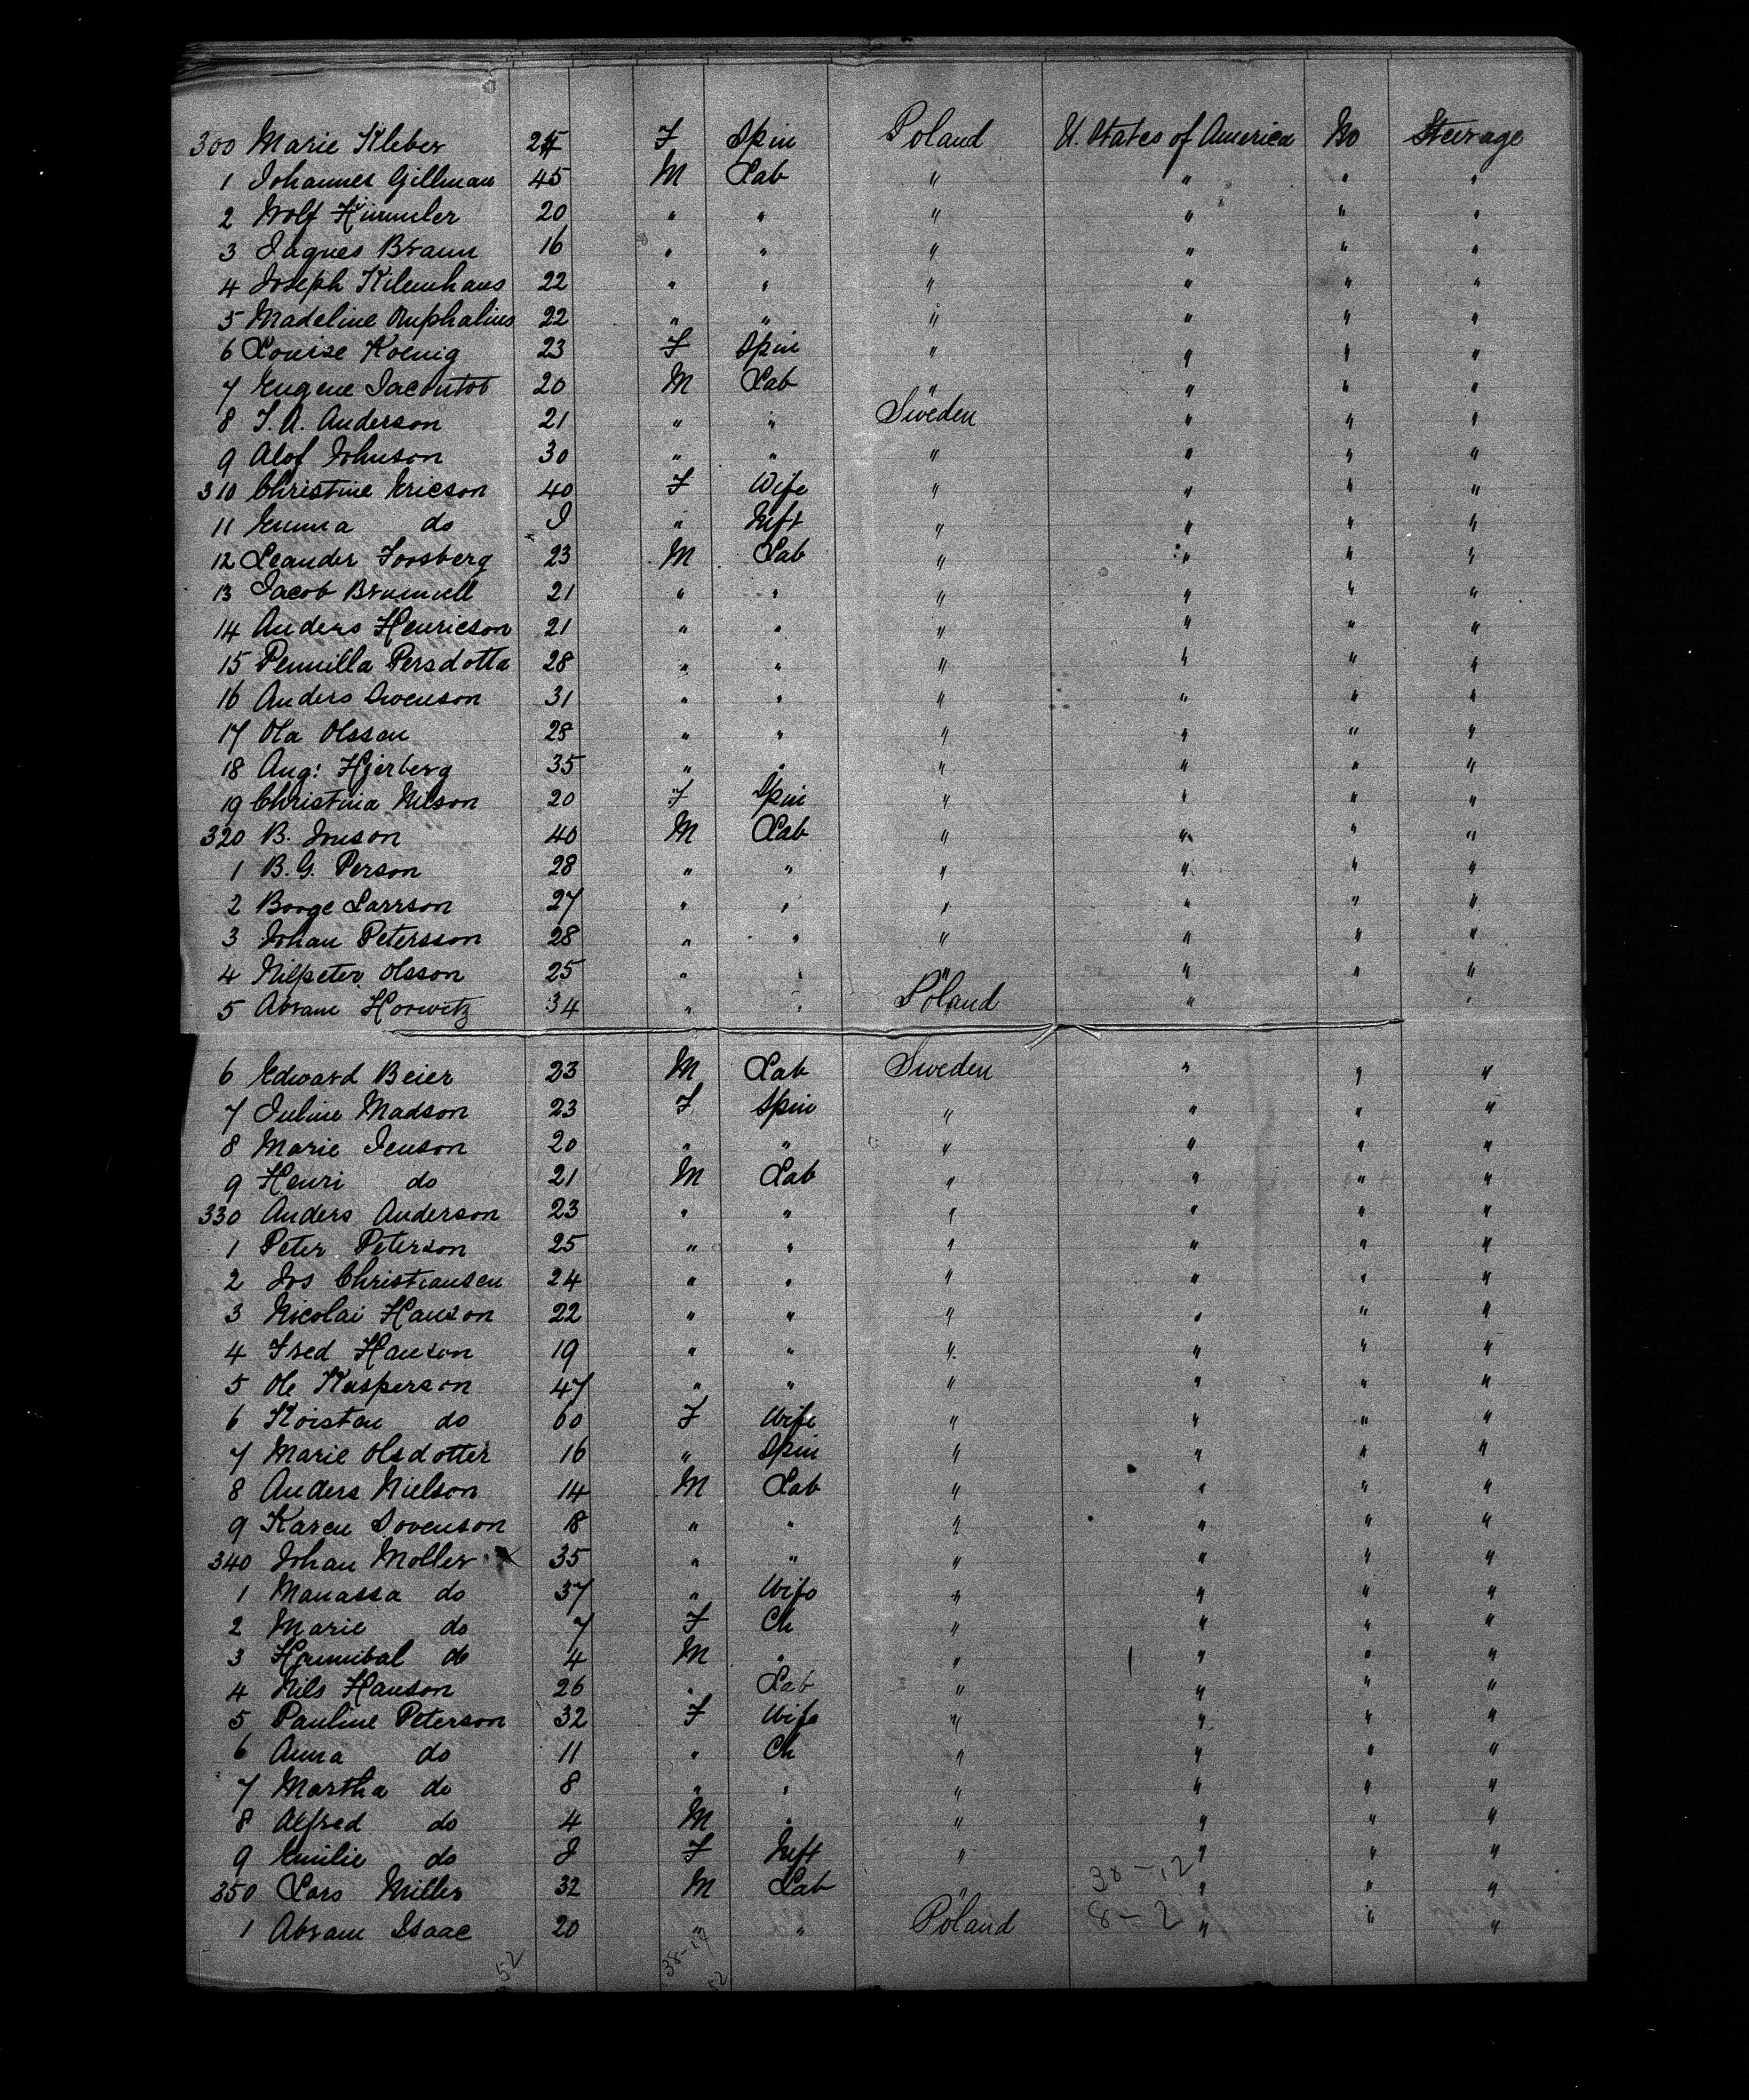 300 Marie Kleber 24 F Spin Poland U. States of America No Steerage
1 Johannes Gillman 45 M Lab " " " "
2 Wolf Himmler 20 " " " " " "
3 Jaques Braun 16 " " " " " "
4 Joseph Kilemhaus 22 " " " " " "
5 Madeline 22 " " " " " "
6 Louise Koenig 23 F Spin " " " "
7 Eugene 20 M Lab " " " "
8 J. A. Anderson 21 " " Sweden " " "
9 Alof Johnson 30 " " " " " "
310 Christine Ericson 40 F Wife " " " "
11 Emma do " Inft " " " "
12 Leander Forsberg 23 M Lab " " " "
13 Jacob 21 " " " " " "
14 Anders Henricson 21 " " " " " "
15 Pernilla Persdotta 28 " " " " " "
16 Anders Swenson 31 " " " " " "
17 Ola Olssen 28 " " " " " "
18 Aug: Hjerberg 35 " " " " " "
19 Christina Nilson 20 F Spin " " " "
320 B. Jonson 40 M Lab " " " "
1 B. G. Person 28 " " " " " "
2 Borge Larrson 27 " " " " " "
3 Johan Petersson 28 " " " " " "
4 Nilpeter Olsson 25 " " " " " "
5 Abram Horwitz 34 " " Poland " "
6 Edward Beier 23 M Lab Sweden " " "
7 Juline Madson 23 F Spin " " " "
8 Marie Jenson 20 " " " " " "
9 Henri do 21 M Lab " " " "
330 Anders Anderson 23 " " " " " "
1 Peter Peterson 25 " " " " " "
2 Jos Christiansen 24 " " " " " "
3 Nicolai Hanson 22 " " " " " "
4 Fred Hanson 19 " " " " " "
5 Ole Kasperson 47 " " " " " "
6 Koisten do 60 F Wife " " " "
7 Marie Olsdotter 16 " Spin " " " "
8 Anders Nielson 14 M Lab " " " "
9 Karen Sovenson 18 " " " " " "
340 Johan Moller x 35 " " " " " "
1 Manassa do 37 " Wife " " " "
2 Marie do 7 F Ch " " " "
3 Hannibal do 4 M " " " " "
4 Nils Hanson 26 " Lab " " " "
5 Pauline Peterson 32 F Wife " " " "
6 Anna do 11 " Ch " " " "
7 Martha do 8 " " " " " "
8 Alfred do 4 M " " " " "
9 Emilie do F Inft " " " "
350 Lars Miller 32 M Lab " " " "
38-12
1 Abram Isaac 20 " " Poland " " "
8-2
52 38-17 52